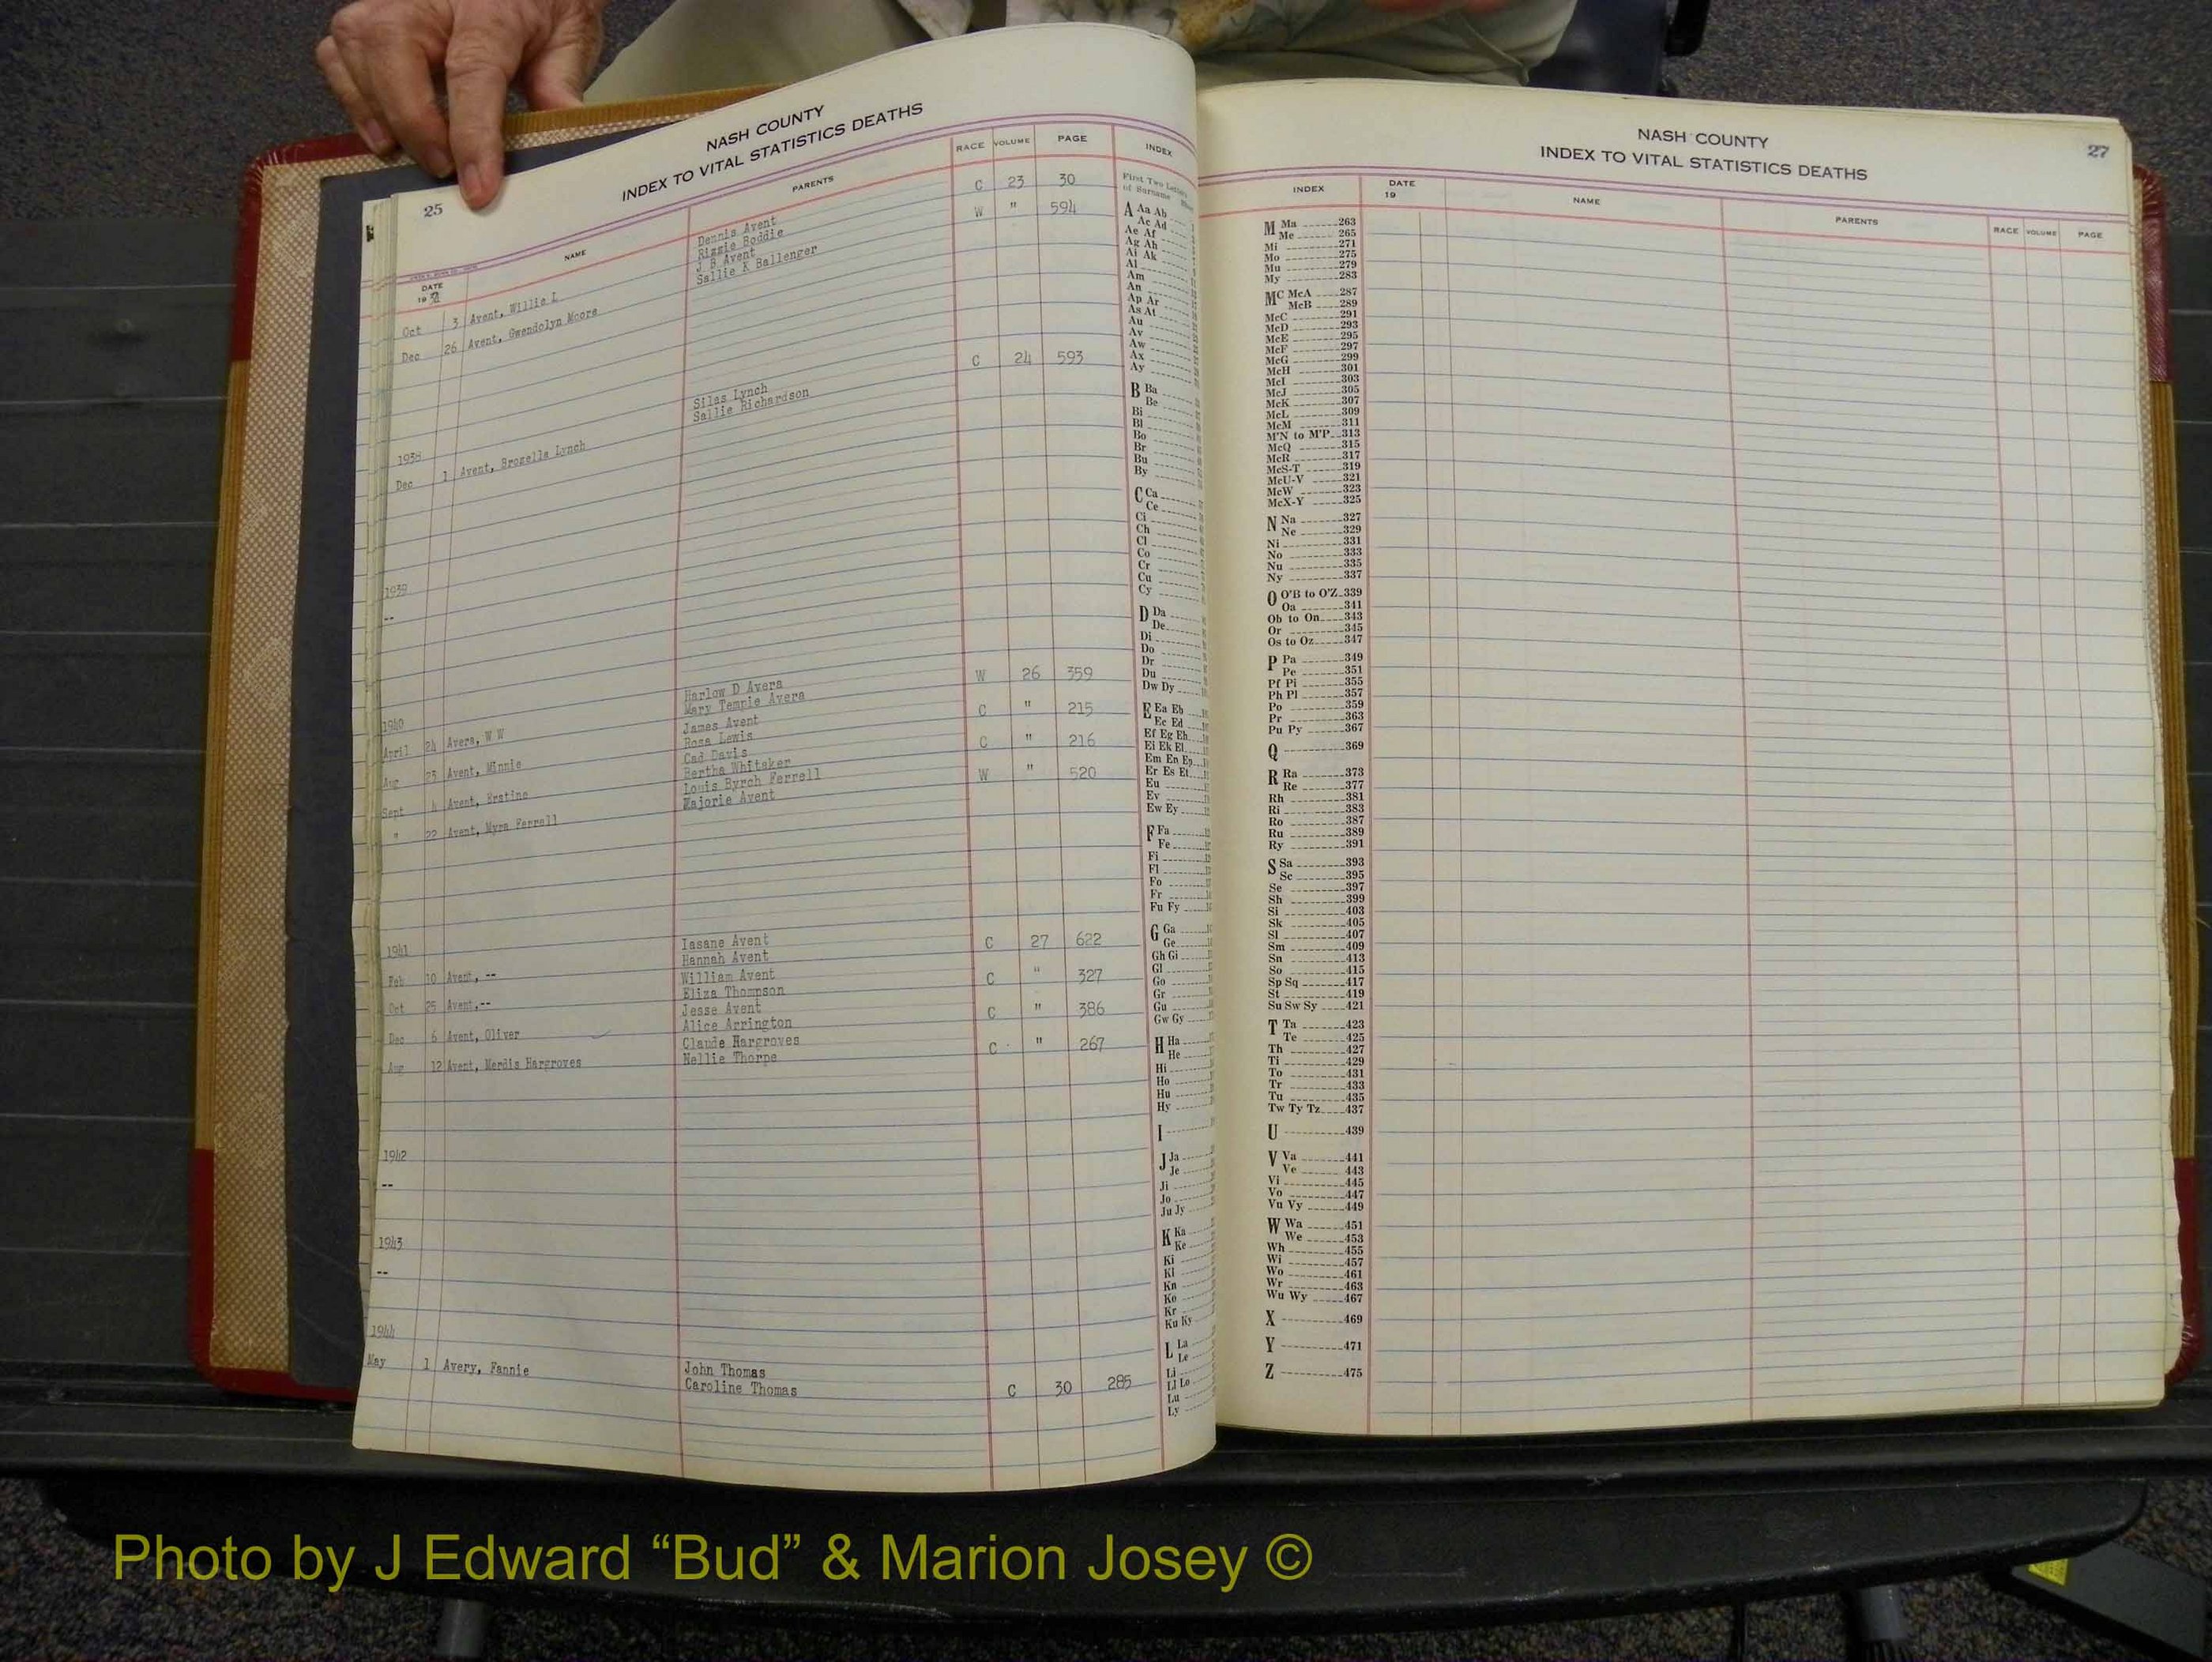 NASH COUNTY
INDEX TO VITAL STATISTICS DEATHS
25
DATE
19
NAME
PARENTS
RACE
VOLUME
PAGE
INDEX
Oct 3 Avent, Willie L Dennis Avent C 23 30
Rizzie Boddie
Dec 26 Avent, Gwendolyn Moore J B Avent W " 594
Sallie K Ballenger
1938
Dec 1 Avent, Brozella Lynch Silas Lynch C 24 593
Sallie Richardson
1939
--
1940
April 24 Avera, W W Harlow D Avera W 26 359
Mary Temple Avera
Aug 23 Avent, Minnie James Avent C " 215
Rosa Lewis
Sept 4 Avent, Erstine Cad Davis C " 216
Bertha Whitaker
" 22 Avent, Myra Ferrell Louis Byrch Ferrell W " 520
Majorie Avent
1941
Feb 10 Avent, -- Iasane Avent C 27 622
Hannah Avent
Oct 25 Avent,-- William Avent C " 327
Eliza Thompson
Dec 6 Avent, Oliver Jesse Avent C " 386
Alice Arrington
Aug 12 Avent, Merdis Hargroves Claude Hargroves C " 267
Nellie Thorpe
1942
--
1943
--
1944
May 1 Avery, Fannie John Thomas
Caroline Thomas C 30 285
First Two Letters
of Surname
A Aa Ab
Ac Ad
Ae Af
Ag Ah
Ai Ak
Al
Am
An
Ap Ar
As At
Au
Av
Aw
Ax
Ay
B Ba
Be
Bi
Bl
Bo
Br
Bu
By
C Ca
Ce
Ci
Ch
Cl
Co
Cr
Cu
Cy
D Da
De
Di
Do
Dr
Du
Dw Dy
E Ea Eb
Ec Ed
Ef Eg Eh
Ei Ek El
Em En Ep
Er Es Et
Eu
Ev
Ew Ey
F Fa
Fe
Fi
Fl
Fo
Fr
Fu Fy
G Ga
Ge
Gh Gi
Gl
Go
Gr
Gu
Gw Gy
H Ha
He
Hi
Ho
Hu
Hy
I
J Ja
Je
Ji
Jo
Ju Jy
K Ka
Ke
Ki
Kl
Kn
Ko
Kr
Ku Ky
L La
Le
Li
Ll Lo
Lu
Ly
NASH COUNTY
INDEX TO VITAL STATISTICS DEATHS
27
INDEX
DATE
19
NAME
PARENTS
RACE
VOLUME
PAGE
M Ma 263
Me 265
Mi 271
Mo 275
Mu 279
My 283
Mc McA 287
McB 289
McC 291
McD 293
McE 295
McF 297
McG 299
McH 301
McI 303
McJ 305
McK 307
McL 309
McM 311
M'N to M'P 313
McQ 315
McR 317
McS-T 319
McU-V 321
McW 323
McX-Y 325
N Na 327
Ne 329
Ni 331
No 333
Nu 335
Ny 337
O O'B to O'Z 339
Oa 341
Ob to On 343
Or 345
Os to Oz 347
P Pa 349
Pe 351
Pf Pi 355
Ph Pl 357
Po 359
Pr 363
Pu Py 367
Q 369
R Ra 373
Re 377
Rh 381
Ri 383
Ro 387
Ru 389
Ry 391
S Sa 393
Sc 395
Se 397
Sh 399
Si 403
Sk 405
Sl 407
Sm 409
Sn 413
So 415
Sp Sq 417
St 419
Su Sw Sy 421
T Ta 423
Te 425
Th 427
Ti 429
To 431
Tr 433
Tu 435
Tw Ty Tz 437
U 439
V Va 441
Ve 443
Vi 445
Vo 447
Vu Vy 449
W Wa 451
We 453
Wh 455
Wi 457
Wo 461
Wr 463
Wu Wy 467
X 469
Y 471
Z 475
Photo by J Edward “Bud” & Marion Josey ©